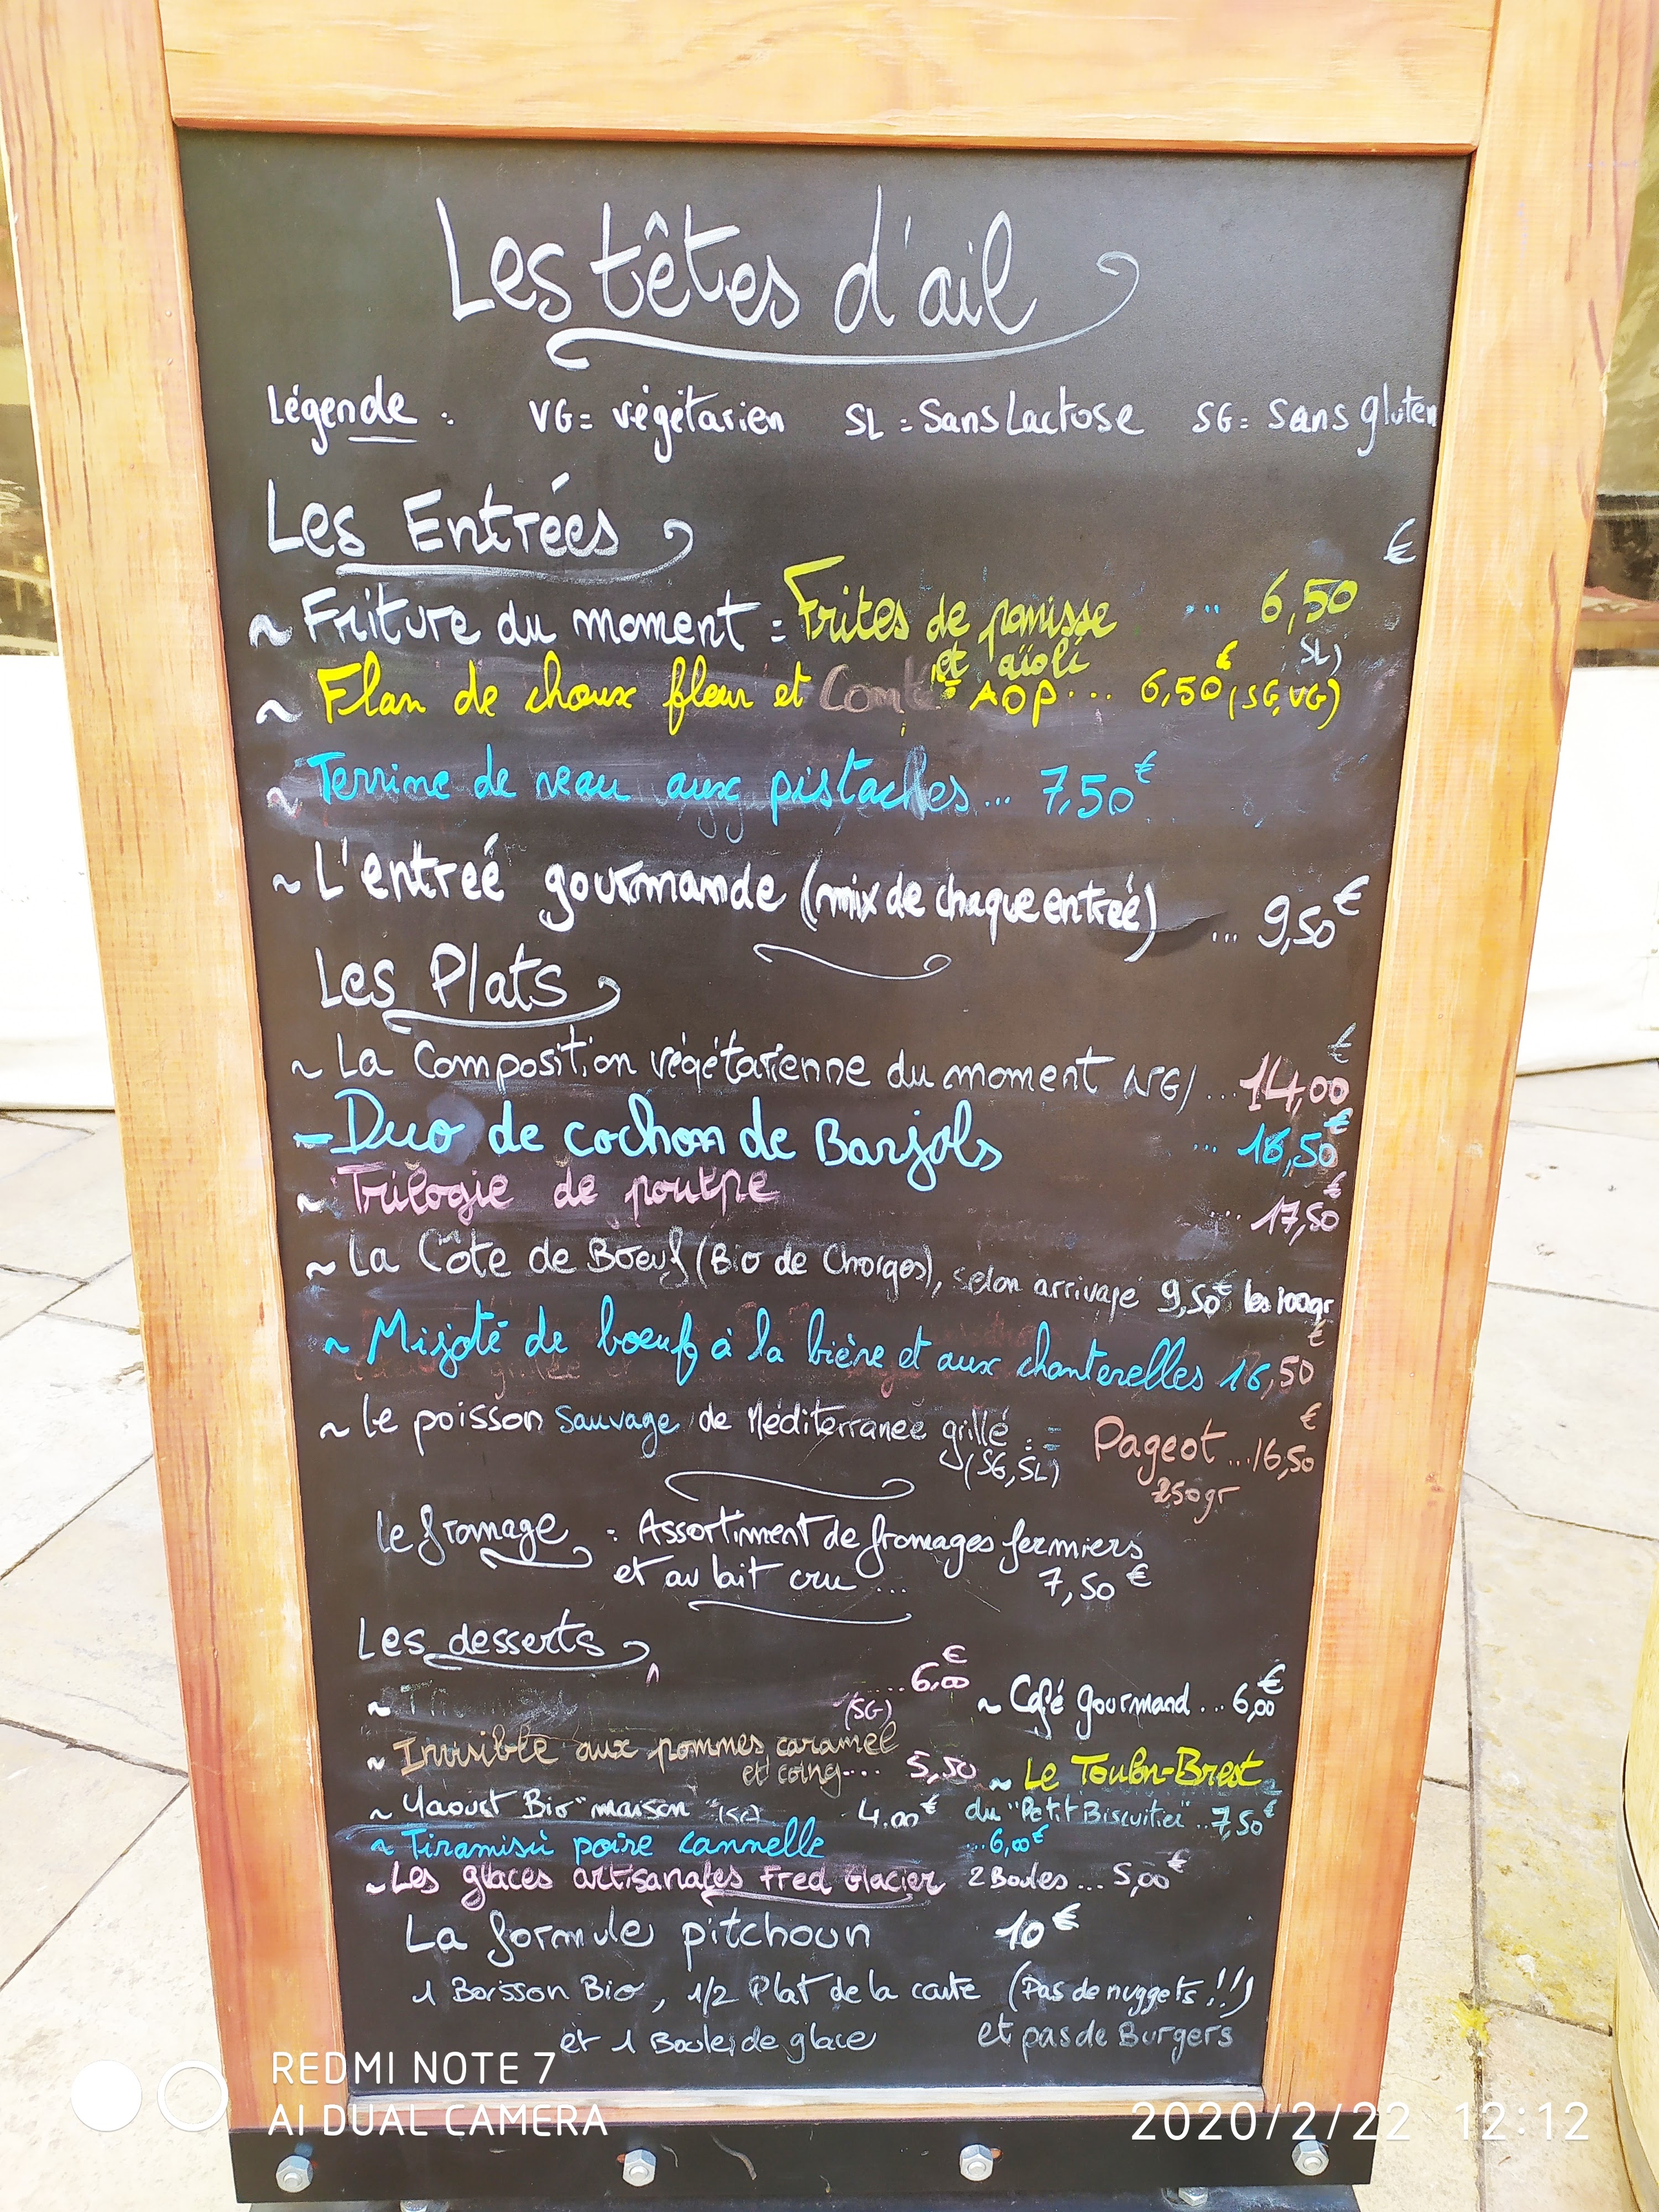 Les têtes d'ail
Légende : VG = végétarien SL = Sans Lactose SG = Sans gluten
Les Entrées €
~ Friture du moment = Frites de panisse ... 6,50
et aïoli SL)
~ Flan de choux fleur et Comté AOP ... 6,50€ (SG, VG)
~ Terrine de veau aux pistaches ... 7,50€
~ L'entreé gourmande (mix de chaque entreé) ... 9,50€
Les Plats
~ La Composition végétarienne du moment (VG) ... 14,00€
- Duo de cochon de Barjols ... 18,50€
~ Trilogie de poulpe ... 17,50€
~ La Côte de Boeuf (Bio de Chorges), selon arrivage 9,50€ les 100gr
~ Mijoté de boeuf à la bière et aux chanterelles 16,50€
~ Le poisson Sauvage de Méditerraneé grillé : = Pageot ... 16,50€
(SG, SL) 250gr
Le fromage : Assortiment de fromages fermiers
et au lait cru ... 7,50€
Les desserts
~ (SG) .... 6,00€ ~ Café gourmand ... 6,00€
~ Invisible aux pommes caramel
et coing ... 5,50 ~ Le Toulon-Brest
~ Yaourt Bio "maison" (SG) 4,00€ du "Petit Biscuitier" .. 7,50€
~ Tiramisù poire cannelle ... 6,00€
~ Les glaces artisanales Fred Glacier 2 Boules ... 5,00€
La formule pitchoun 10€
1 Boisson Bio, 1/2 Plat de la carte (Pas de nuggets !!)
et 1 Boule de glace et pas de Burgers
REDMI NOTE 7
AI DUAL CAMERA
2020/2/22 12:12